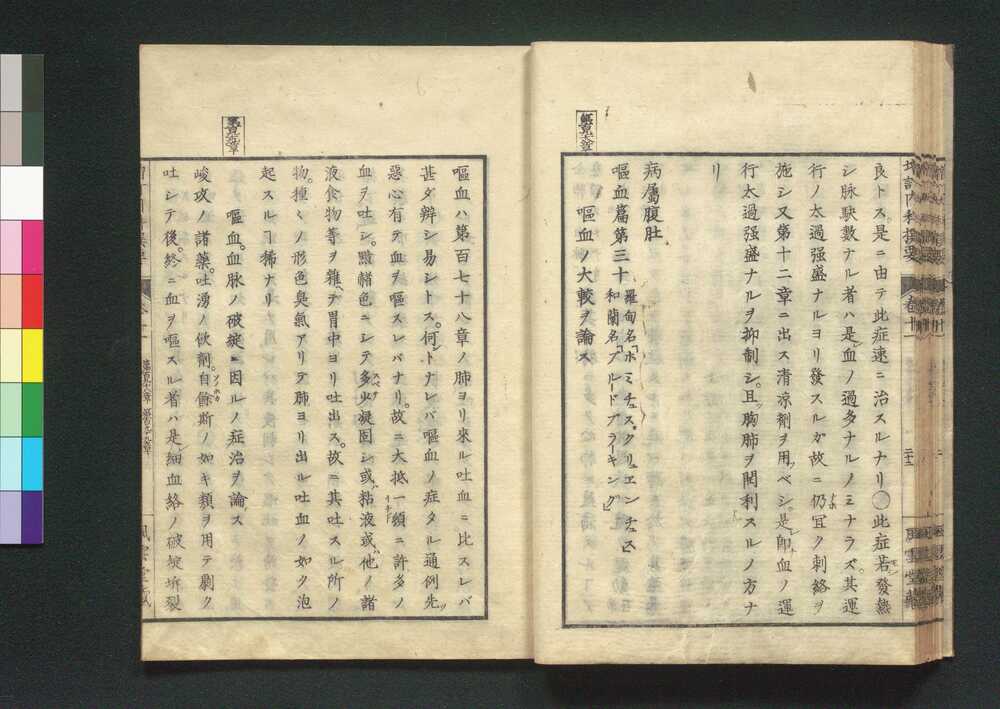 良トス。是ニ由テ此症速ニ治スルナリ〇此症若シ發熱
シ脉駃數ナル者ハ是血ノ過多ナルノミナラズ。其運
行ノ太過強盛ナルヨリ發スルガ故ニ仍冝ク刺絡ヲ
施シ又第十二章ニ出ス清凉劑ヲ用ベシ。是即血ノ運
行太過强盛ナルヲ抑制シ。且胸肺ヲ開利スルノ方ナ
リ
病属腹肚
嘔血篇第三十 羅甸名「ホミチュス。クリュエンチュス」
和蘭名「ブルードブラーキング」
嘔血ノ大較ヲ論ス
嘔血ハ第百七十八章ノ肺ヨリ來ル吐血ニ比スレバ
甚ダ辨シ易シトス。何トナレバ嘔血ノ症タル通例先ヅ
惡心有テ血ヲ嘔スレバナリ。故ニ大抵一頓ニ許多ノ
血ヲ吐シ。黯赭色ニシテ多少凝固シ或ハ粘液或ハ他ノ諸
液食物等ヲ雜ヘテ胃中ヨリ吐出ス。故ニ其吐スルノ所ノ
物。種々ノ形色臭氣アリテ肺ヨリ出ル吐血ノ如ク泡
起スルヿ稀ナリ
嘔血。血脉ノ破綻ニ因ルノ症治ヲ論ス
峻攻ノ諸藥。吐湧ノ欬劑。自餘斯ノ如キ類ヲ用テ劇ク
吐シテ後。終ニ血ヲ嘔スル者ハ是細血絡ノ破綻拆裂